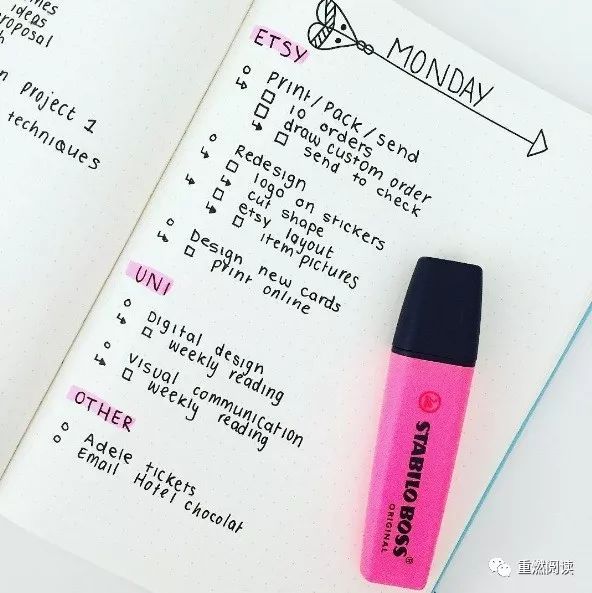 ideas
proposal
n project 1
techniques
MONDAY
ETSY
Print/Pack/send
10 orders
draw custom order
send to check
Redesign
logo on stickers
cut shape
etsy layout
item pictures
Design new cards
print online
UNI
Digital design
weekly reading
visual communication
weekly reading
OTHER
Adele tickets
Email Hotel chocolat
STABILO BOSS
ORIGINAL
重燃阅读